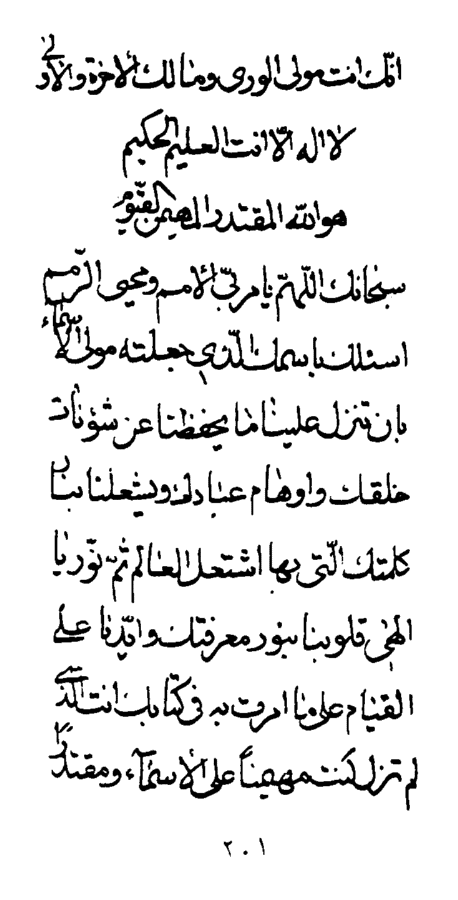 انّك انت مولى الورى ومالك الاخرة والاولى
لا اله الّا انت العليم الحكيم
هو الله المقتدر المهيمن القيّوم
سبحانك اللّهمّ يا مربّي الامم ومحيي الرّمم
اسئلك باسمك الّذي جعلته مولى الاسماء
بان تنزل علينا ما يحفظنا عن شؤنات
خلقك واوهام عبادك ويشعلنا بنار
كلمتك الّتي بها اشتعل العالم ثمّ نوّر يا
الهي قلوبنا بنور معرفتك وايّدنا على
القيام على ما امرت به في كتابك انت الّذي
لم تزل كنت مهيمناً على الاسمآء ومقتدراً
٢٠١